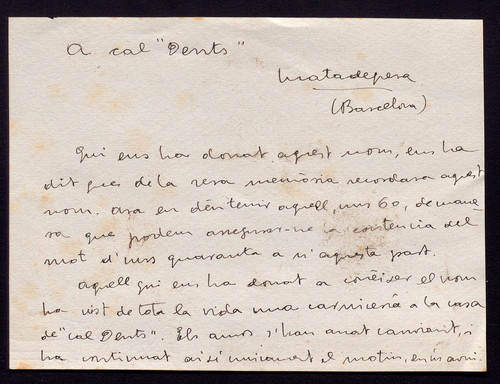 A cal "Dents"
Matadepera
(Barcelona)
Qui ens ha donat aquest nom, ens ha
dit que de la seva memòria recordava aquest
nom. Ara en déu tenir aquell, uns 60, de mane-
ra que podem assegurar-ne la existencia del
mot d'uns quaranta a n'aquesta part.
Aquell qui ens ha donat a conèixer el nom
ha vist de tota la vida una carniceria a la casa
de "cal Dents". Els amos s'han anat canviant, i
ha continuat així unicament el motiu, en